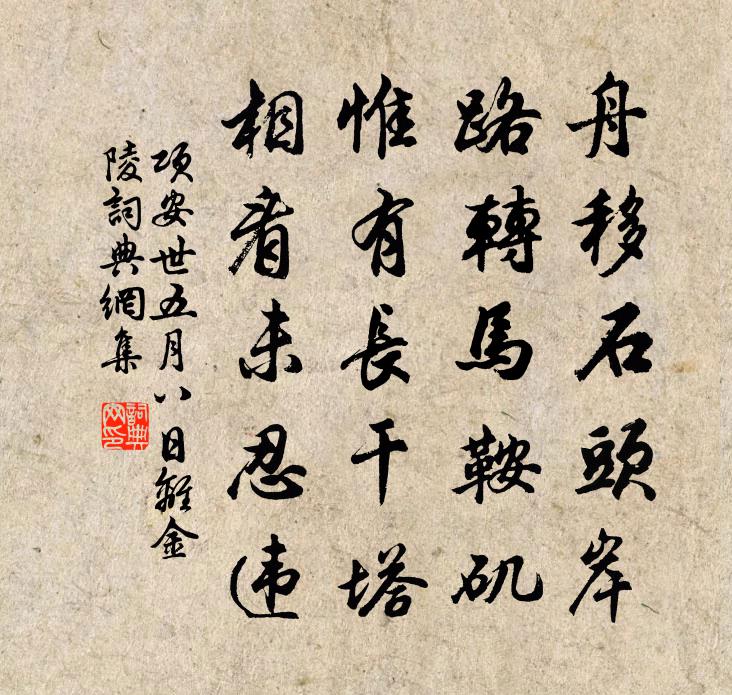 舟移石頭岸
路轉馬鞍矶
惟有長干塔
相看未忍违
項安世五月八日離金
陵詞典網集
詞典
网印